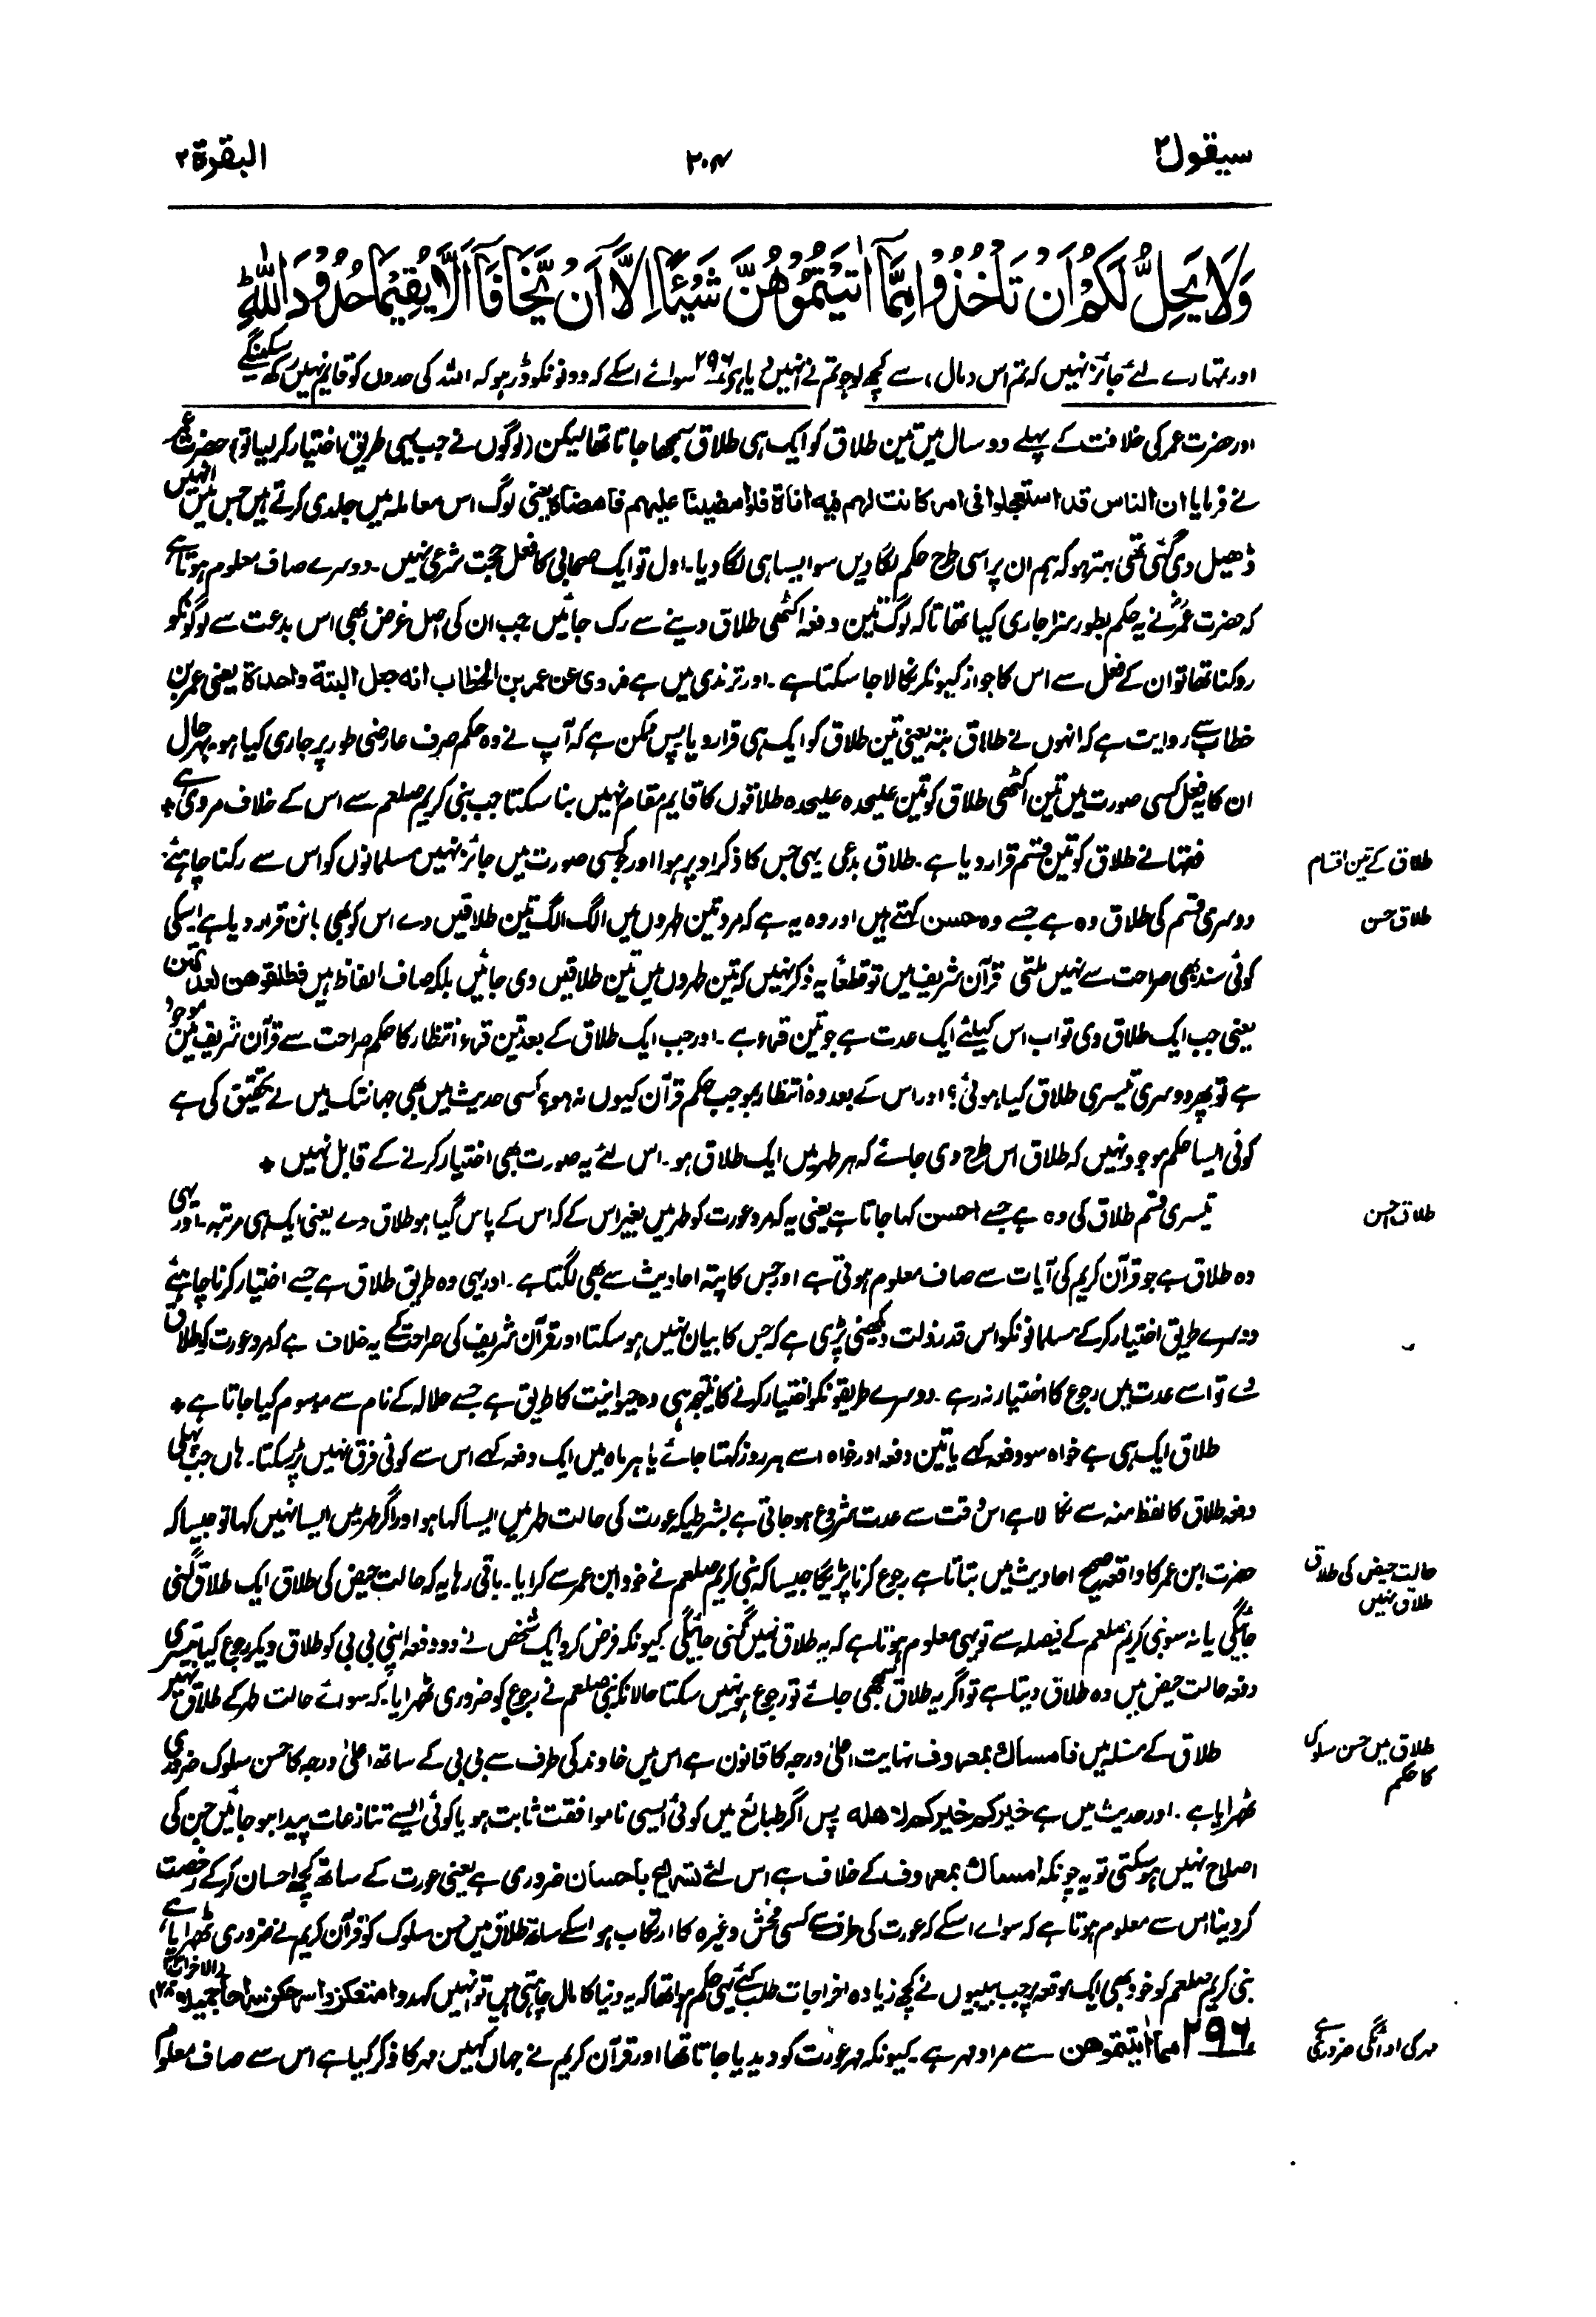 سیقول ۲
۲۰۴
البقرة ۲
وَلَا يَحِلُّ لَكُمْ اَنْ تَأْخُذُوْا مِمَّآ اٰتَيْتُمُوْهُنَّ شَيْـًٔا اِلَّآ اَنْ يَّخَافَآ اَلَّا يُقِيْمَا حُدُوْدَ اللّٰهِ ط
اور تمہارے لئے جائز نہیں کہ تم اس (مال) سے کچھ لو جو تم نے انہیں دیا ہو ۲۹۶ سوائے اسکے کہ دونونکو ڈر ہو کہ اللہ کی حدوں کو قایم نہیں رکھ سکینگے
اور حضرت عمر کی خلافت کے پہلے دو سال میں تین طلاق کو ایک ہی طلاق سمجھا جاتا تھا لیکن (لوگوں نے جب یہی طریق اختیار کر لیا تو) حضرت عمرؓ
نے فرمایا ان الناس قد استعجلوا فی امر کانت لہم فیہ اناة فلو امضینا علیہم فامضاہ یعنی لوگ اس معاملہ میں جلدی کرتے ہیں جس میں انہیں
ڈھیل دی گئی تھی بہتر ہو کہ ہم ان پر اسی طرح حکم لگا دیں سو ایسا ہی لگا دیا۔ اول تو ایک صحابی کا فعل حجت شرعی نہیں۔ دوسرے صاف معلوم ہوتا ہے
کہ حضرت عمرؓ نے یہ حکم بطور سزا جاری کیا تھا تاکہ لوگ تین دفعہ اکٹھی طلاق دینے سے رک جائیں جب ان کی اصل غرض بھی اس بدعت سے لوگونکو
روکنا تھا تو ان کے فعل سے اس کا جواز کیونکر نکالا جا سکتا ہے۔ اور ترمذی میں ہے فروی عن عمر بن الخطاب انہ جعل البتة واحدة یعنی عمر بن
خطاب سے روایت ہے کہ انہوں نے طلاق بتہ یعنی تین طلاق کو ایک ہی قرار دیا پس ممکن ہے کہ آپ نے وہ حکم صرف عارضی طور پر جاری کیا ہو۔ بہرحال
ان کا یہ فعل کسی صورت میں تین اکٹھی طلاق کو تین علیحدہ علیحدہ طلاقوں کا قایم مقام نہیں بنا سکتا جب نبی کریم صلعم سے اس کے خلاف مروی ہے ٭
فقہا نے طلاق کو تین قسم قرار دیا ہے۔ طلاق بدعی یہی جس کا ذکر اوپر ہوا اور جو کسی صورت میں جائز نہیں مسلمانوں کو اس سے رکنا چاہئے۔
طلاق کے تین اقسام
دوسری قسم کی طلاق وہ ہے جسے وہ حسن کہتے ہیں اور وہ یہ ہے کہ مرد تین طہروں میں الگ الگ تین طلاقیں دے اس کو بھی بائن قرار دیا ہے اسکی
طلاق حسن
کوئی سند بھی صراحت سے نہیں ملتی قرآن شریف میں تو قطعاً یہ ذکر نہیں کہ تین طہروں میں تین طلاقیں دی جائیں بلکہ صاف الفاظ ہیں فطلقوھن لعدتھن
یعنی جب ایک طلاق دی تو اب اس کیلئے ایک عدت ہے جو تین قروء ہے۔ اور جب ایک طلاق کے بعد تین قروء انتظار کا حکم صراحت سے قرآن شریف میں موجود
ہے تو پھر دوسری تیسری طلاق کیا ہوئی؟ اور اس کے بعد وہ انتظار بموجب حکم قرآن کیوں نہ ہو؟ کسی حدیث میں بھی جہانتک میں نے تحقیق کی ہے
کوئی ایسا حکم موجود نہیں کہ طلاق اس طرح دی جائے کہ ہر طہر میں ایک طلاق ہو۔ اس لئے یہ صورت بھی اختیار کرنے کے قابل نہیں ٭
تیسری قسم طلاق کی وہ ہے جسے احسن کہا جاتا ہے یعنی یہ کہ مرد عورت کو طہر میں بغیر اس کے کہ اس کے پاس گیا ہو طلاق دے یعنی ایک ہی مرتبہ۔ اور یہی
طلاق احسن
وہ طلاق ہے جو قرآن کریم کی آیات سے صاف معلوم ہوتی ہے اور جس کا پتہ احادیث سے بھی لگتا ہے۔ اور یہی وہ طریق طلاق ہے جسے اختیار کرنا چاہئے
دوسرے طریق اختیار کرکے مسلمانونکو اس قدر ذلت دیکھنی پڑی ہے کہ جس کا بیان نہیں ہو سکتا اور قرآن شریف کی صراحت کے یہ خلاف ہے کہ مرد عورت کو طلاق
دے تو اسے عدت میں رجوع کا اختیار نہ رہے۔ دوسرے طریقونکو اختیار کرنے کا نتیجہ ہی وہ حیوانیت کا طریق ہے جسے حلالہ کے نام سے موسوم کیا جاتا ہے ٭
طلاق ایک ہی ہے خواہ سو دفعہ کہے یا تین دفعہ اور خواہ اسے ہر روز کہتا جائے یا ہر ماہ میں ایک دفعہ کہے اس سے کوئی فرق نہیں پڑ سکتا۔ ہاں جب پہلی
دفعہ طلاق کا لفظ منہ سے نکالا ہے اس وقت سے عدت شروع ہو جاتی ہے بشرطیکہ عورت کی حالت طہر میں ایسا کہا ہو اور اگر طہر میں ایسا نہیں کہا تو جیسا کہ
حضرت ابن عمر کا واقعہ صحیح احادیث میں بتاتا ہے رجوع کرنا پڑیگا جیسا کہ نبی کریم صلعم نے خود ابن عمر سے کرایا۔ باقی رہا یہ کہ حالت حیض کی طلاق ایک طلاق گنی
حالت حیض کی طلاق
طلاق نہیں
جائیگی یا نہ سو نبی کریم صلعم کے فیصلہ سے تو یہی معلوم ہوتا ہے کہ یہ طلاق نہیں گنی جائیگی کیونکہ فرض کرو ایک شخص نے دو دفعہ اپنی بی بی کو طلاق دیکر رجوع کیا تیسری
دفعہ حالت حیض میں وہ طلاق دیتا ہے تو اگر یہ طلاق سمجھی جائے تو رجوع ہو نہیں سکتا حالانکہ نبی صلعم نے رجوع کو ضروری ٹھہرایا۔ کہ سوائے حالت طہر کے طلاق نہیں
طلاق کے مسئلہ میں فامساک بمعروف نہایت اعلیٰ درجہ کا قانون ہے اس میں خاوند کی طرف سے بی بی کے ساتھ اعلیٰ درجہ کا حسن سلوک ضروری
طلاق میں حسن سلوک
کا حکم
ٹھہرایا ہے۔ اور حدیث میں ہے خیرکم خیرکم لاھلہ پس اگر طبائع میں کوئی ایسی ناموافقت ثابت ہو یا کوئی ایسے تنازعات پیدا ہو جائیں جن کی
اصلاح نہیں ہو سکتی تو یہ چونکہ امساک بمعروف کے خلاف ہے اس لئے تسریح باحسان ضروری ہے یعنی عورت کے ساتھ کچھ احسان کرکے رخصت
کر دینا اس سے معلوم ہوتا ہے کہ سوائے اسکے کہ عورت کی طرف سے کسی فحش وغیرہ کا ارتکاب ہو اسکے ساتھ طلاق میں حسن سلوک کو قرآن کریم نے ضروری ٹھہرایا ہے،
نبی کریم صلعم کو خود بھی ایک موقعہ پر جب بیبیوں نے کچھ زیادہ اخراجات طلب کئے یہی حکم ہوا تھا کہ یہ دنیا کا مال چاہتی ہیں تو انہیں کہدو امتعکن واسرحکن سراحا جمیلا (الاحزاب ۲۸)
۲۹۶ مما اٰتیتموھن سے مراد مہر ہے۔ کیونکہ مہر عورت کو دیدیا جاتا تھا اور قرآن کریم نے جہاں کہیں مہر کا ذکر کیا ہے اس سے صاف معلوم
مہر کی ادائگی ضروری ہے